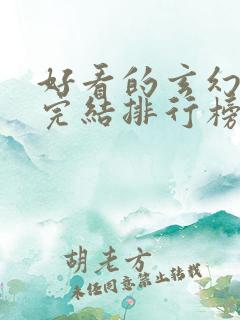 好看的玄幻
完结排行榜
胡老方
未经同意禁止转载